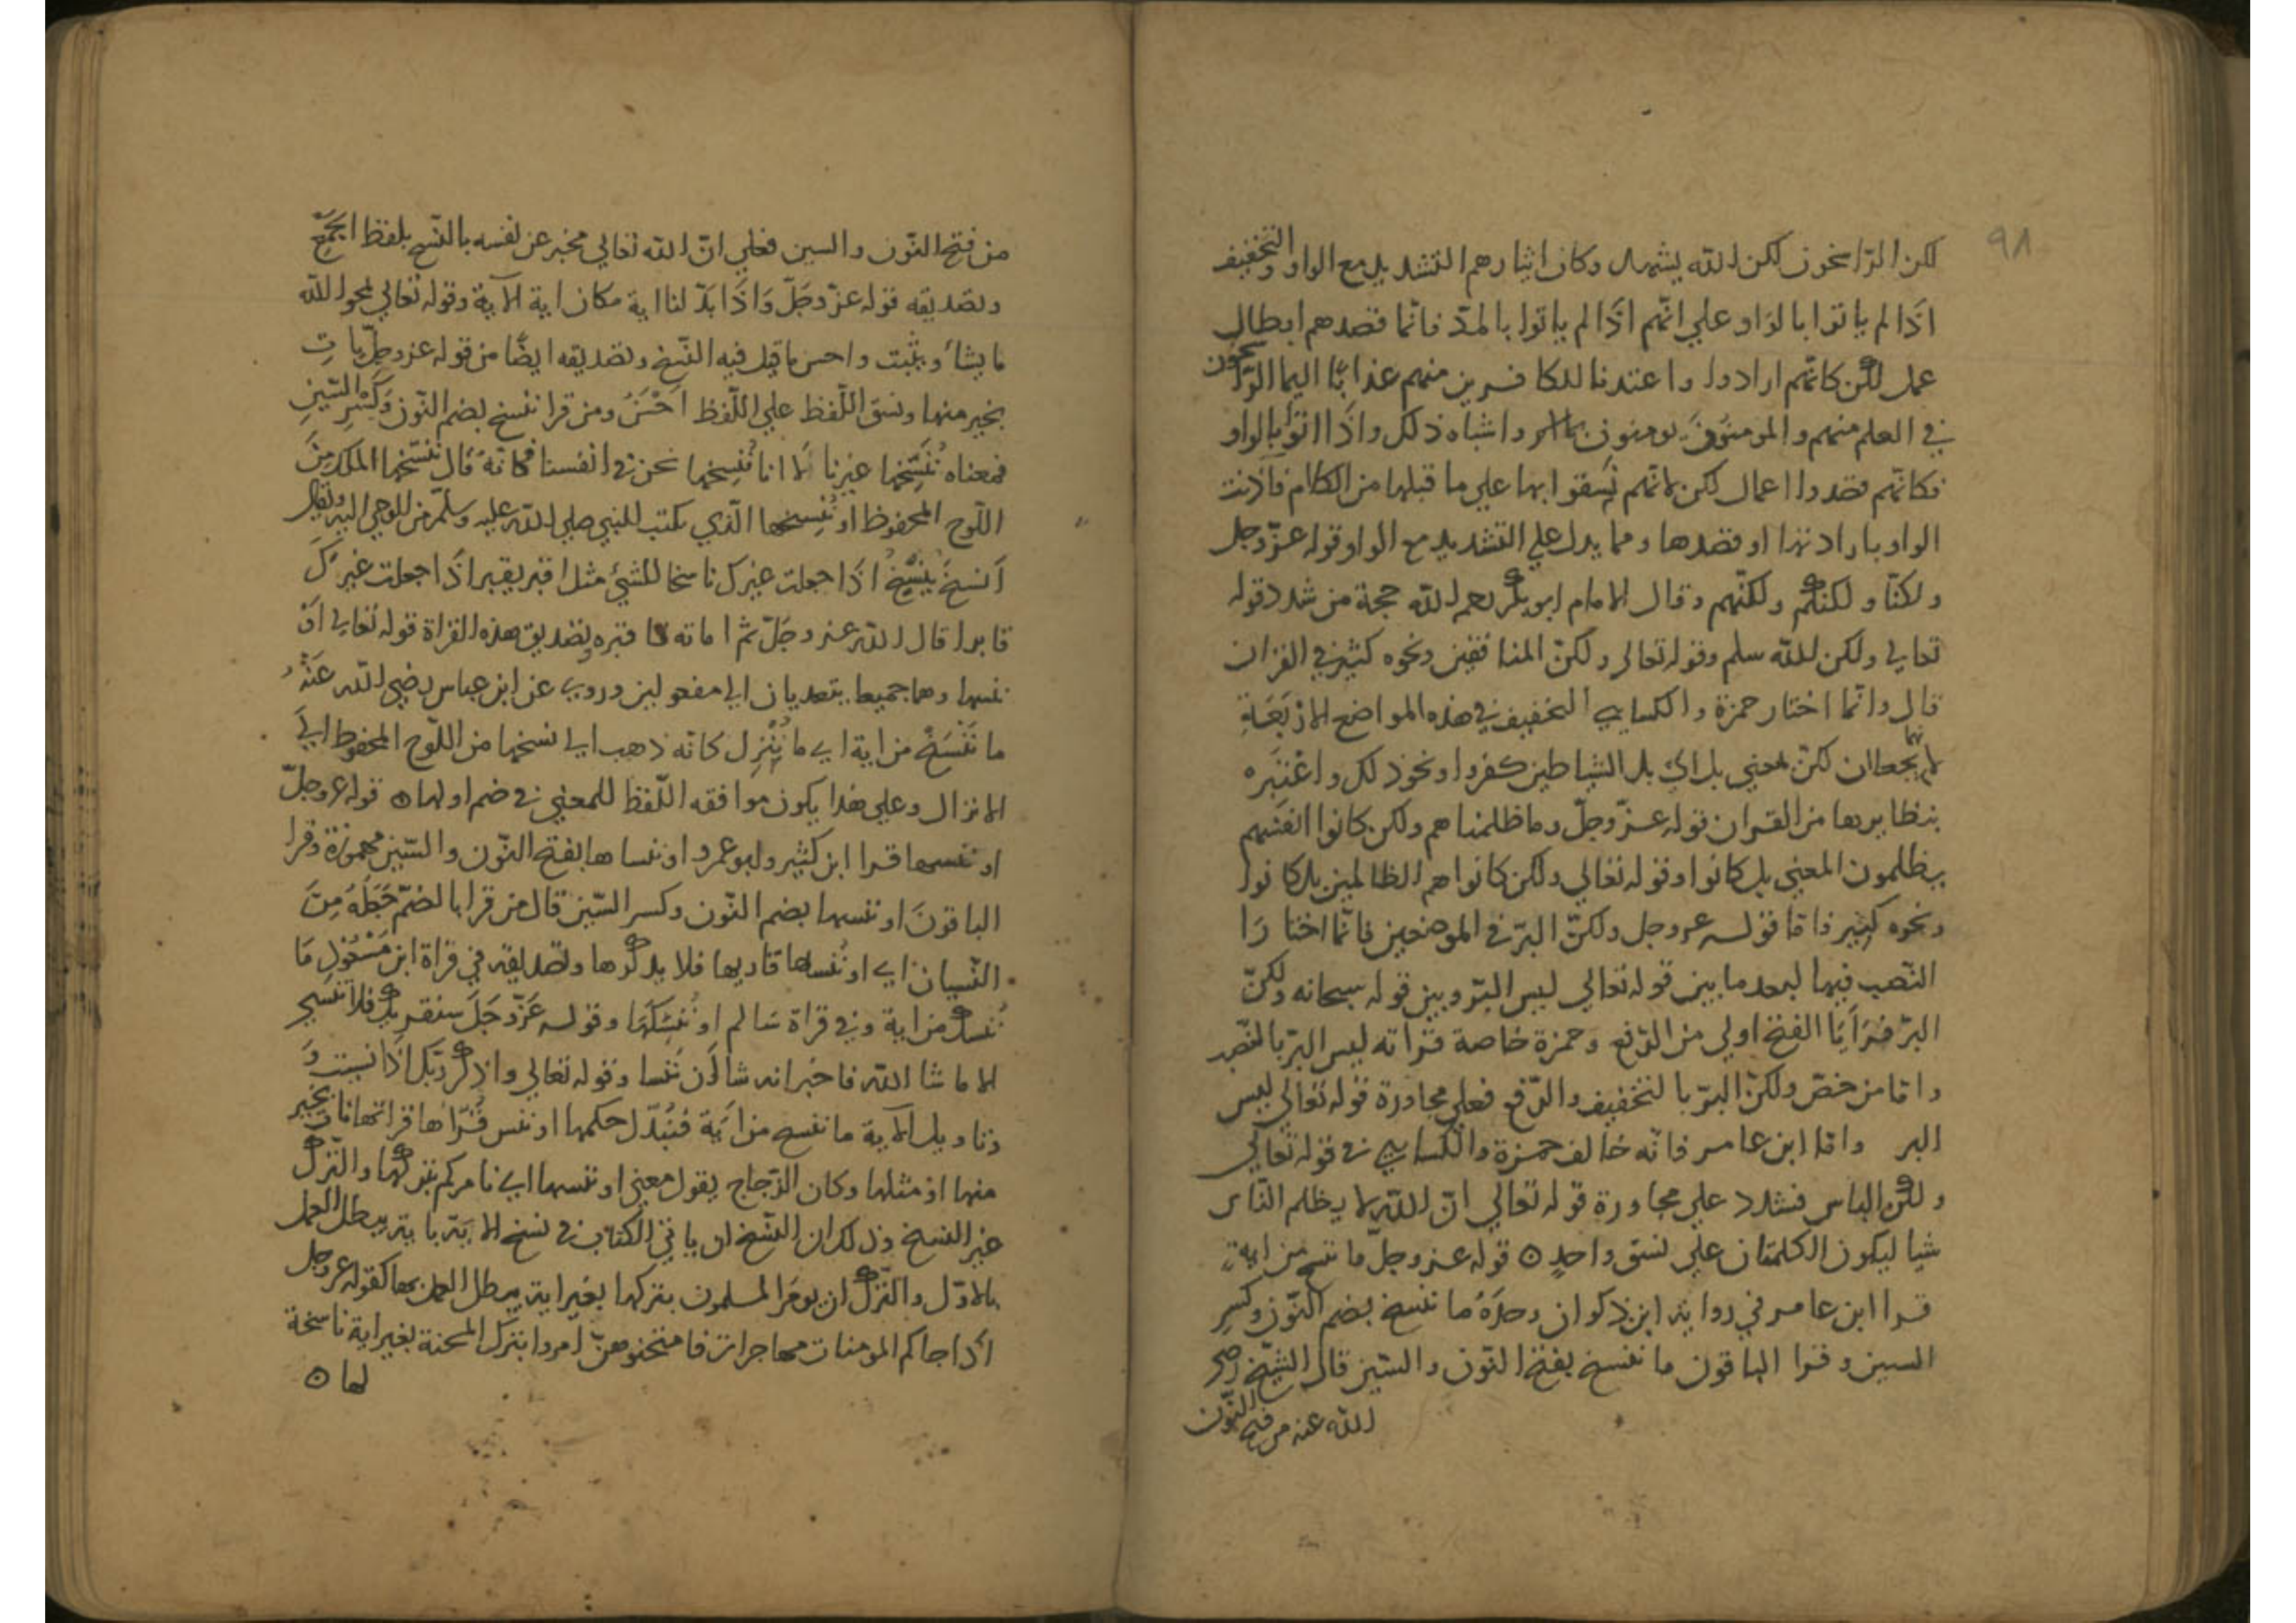 ٩٨
لكن الرّاسخون لكن الله يشهد وكان ايثارهم التشديد مع الواو والتخفيف
اذا لم ياتوا بالواو علي انهم اذا لم ياتوا بالمدّ فانما قصدهم ابطال
عمل لكن كانهم ارادوا واعتدنا للكافرين منهم عذابًا اليما الرّاسخون
في العلم منهم والمومنون يومنون واشباه ذلك واذا اتوا بالواو
فكانهم قصدوا اعمال لكن لانهم نسقوا بها علي ما قبلها من الكلام فاذنت
الواو بارادتها او قصدها ومما يدل علي التشديد مع الواو قوله عزّ وجل
ولكنّا ولكنكم ولكنّهم وقال الامام ابو بكر رحمه الله حجة من شدد قوله
تعالي ولكن الله سلم وقوله تعالي ولكنّ المنافقين ونحوه كثير في القران
قال وانما اختار حمزة والكسايي التخفيف في هذه المواضع الاربعة
لانهما يجعلان لكن لمعني بل اي بل الشياطين كفروا ونحو ذلك واعتبره
بنظايرها من القران قوله عزّ وجلّ وما ظلمناهم ولكن كانوا انفسهم
يظلمون المعني بل كانوا وقوله تعالي ولكن كانوا هم الظالمين بل كانوا
ونحوه كثير فاما قوله عز وجل ولكنّ البرّ في الموضعين فانما اختارا
النّصب فيها لبعد ما بين قوله تعالي ليس البرّ وبين قوله سبحانه ولكنّ
البرّ فرايا الفتح اولي من الرّفع وحمزة خاصة قراته ليس البرّ بالنّصب
واما من خصّ ولكن البرّ بالتخفيف والرّفع فعلي مجاورة قوله تعالي ليس
البر واما ابن عامر فانه خالف حمزة والكسايي في قوله تعالي
ولكن الناس فشدد علي مجاورة قوله تعالي انّ الله لا يظلم النّاس
شيا ليكون الكلمتان علي نسق واحدٍ ه قوله عز وجلّ ما ننسخ من اية
قرا ابن عامر في رواية ابن ذكوان وحده ما ننسخ بضم النّون وكسر
السين وقرا الباقون ما ننسخ بفتح النّون والسّين قال الشيخ رضي
الله عنه من فتح النّون
من فتح النّون والسين فعلي انّ الله تعالي مخبر عن نفسه بالنّسخ بلفظ الجمع
وتصديقه قوله عزّ وجلّ واذا بدّلنا اية مكان اية الآية وقوله تعالي يمحو الله
ما يشا ويثبت واحسن ما قيل فيه النّسخ وتصديقه ايضًا من قوله عز وجلّ نات
بخير منها ونسق اللّفظ علي اللّفظ احسن ومن قرا ننسخ بضم النّون وكسر السّين
فمعناه نُنسِخها غيرنا لا انا نُنسِخها نحن في انفسنا فكانه قال ننسخها الملك من
اللّوح المحفوظ او ننسخها الّذي يكتب للنبي صلي الله عليه وسلّم من الوحي اليه ويقال
اَنسخ يُنسِخ اذا جعلت غيرك ناسخا للشيئ مثل اقبر يقبر اذا جعلت غيرك
قابرا قال الله عز وجلّ ثم اماته فاقبره وتصديق هذه القراة قوله تعالي او
ننسها وهما جميعا يتعديان الي مفعولين وروي عن ابن عباس رضي الله عنه
ما ننسخ من اية اي ما نُنْزِل كانه ذهب الي نسخها من اللّوح المحفوظ الي
الانزال وعلي هذا يكون موافقه اللّفظ للمعني في ضم اولها ه قوله عز وجلّ
او ننسها قرا ابن كثير وابو عمرو او ننساها بفتح النّون والسّين مهموزة وقرا
الباقون او ننسها بضم النّون وكسر السّين قال من قرا بالضمّ جعله من
النّسيان اي او ننسها قاريها فلا يذكرها وتصديقه في قراة ابن مسعود ما
ننسك من اية وفي قراة سالم او ننسكها وقوله عزّ وجلّ سنقريك فلا تنسي
الا ما شا الله فاخبر انه شا ان ننسا وقوله تعالي واذكر ربّك اذا نسيت و
وتاويل الاية ما ننسخ من اية فنُبدّل حكمها او ننس قُرّاها قراتها نات بخير
منها او مثلها وكان الزّجاج يقول معني او ننسها اي نامركم بتركها والتّرك
غير النسخ وذلك ان النّسخ ان ياتي الكتاب في نسخ الاية باية يبطل العمل
بالاوّل والتّرك ان يومر المسلمون بتركها بغير اية يبطل العمل بها كقوله عز وجل
اذا جاكم المومنات مهاجرات فامتحنوهنّ امروا بترك المحنة بغير اية ناسخة
لها ه